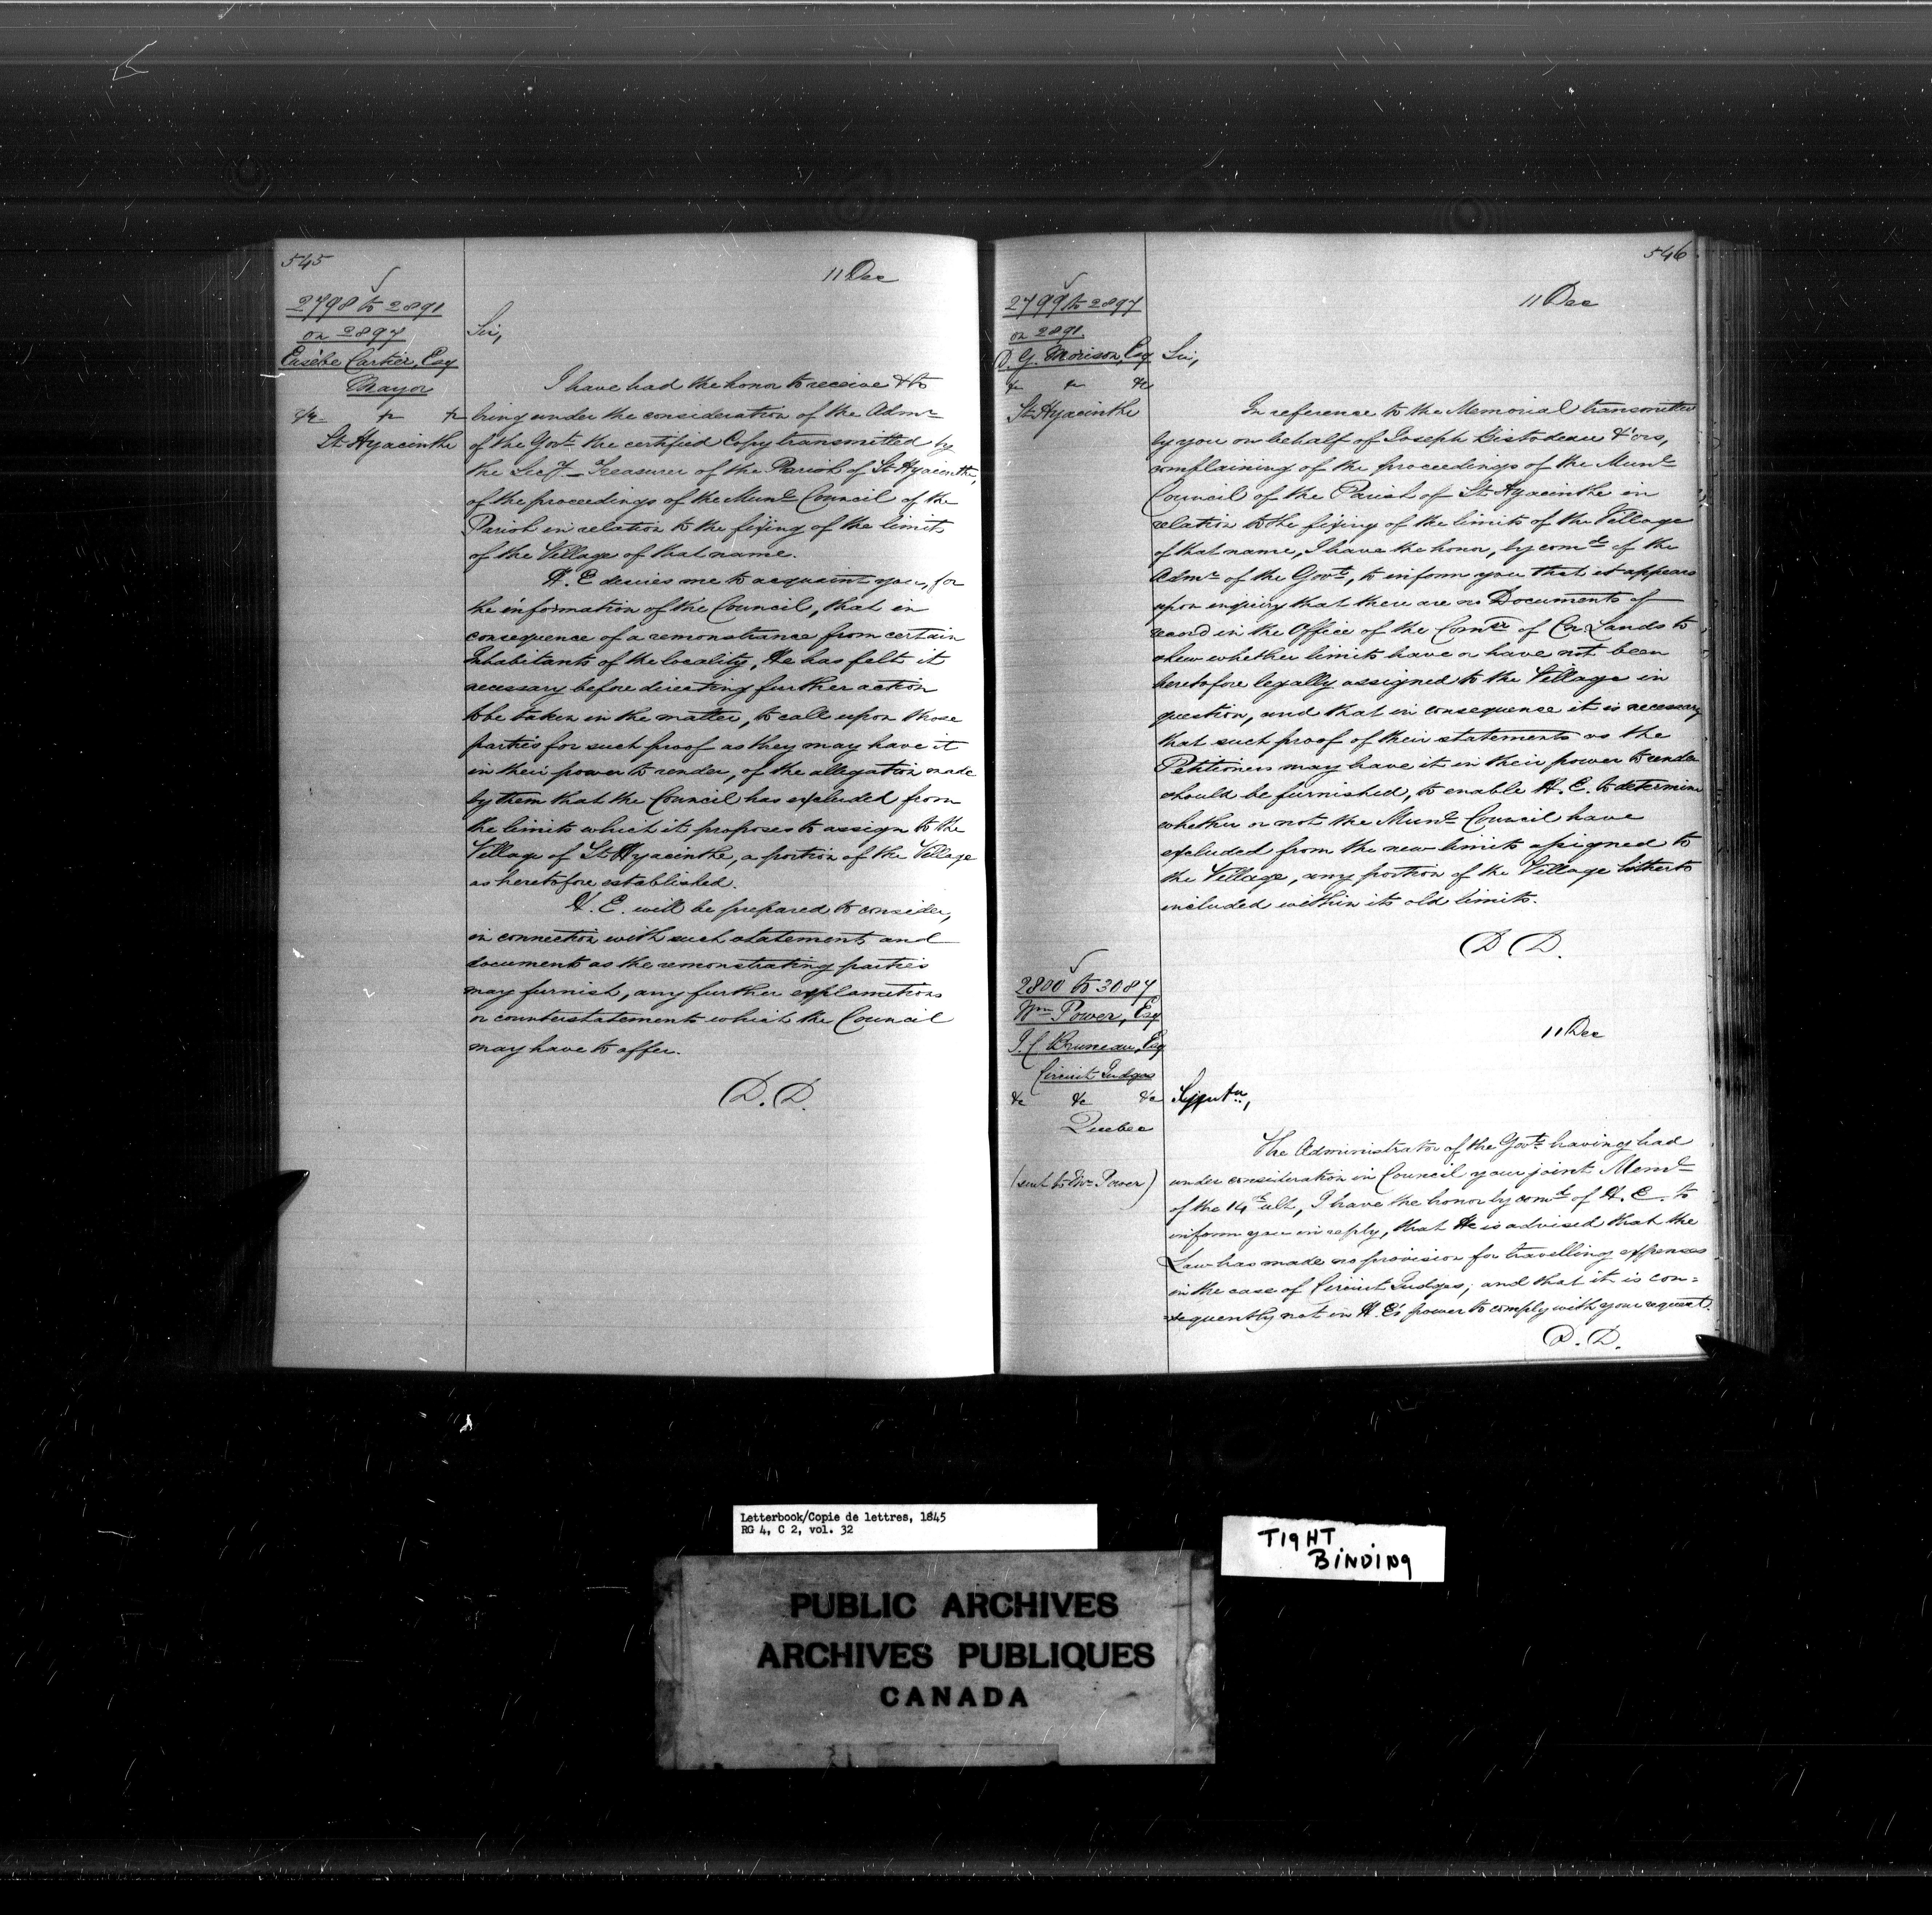 545
11 Dec
2798 to 2891
on 2897
Eusèbe Cartier, Esq
Mayor
&c &c &c
St Hyacinthe
Sir,
I have had the honor to receive & to
bring under the consideration of the Admr
of the Govt the certified Copy transmitted by
the Secy-Treasurer of the Parish of St Hyacinthe,
of the proceedings of the Munl Council of the
Parish in relation to the fixing of the limits
of the Village of that name.
H. E desires me to acquaint you, for
the information of the Council, that in
consequence of a remonstrance from certain
Inhabitants of the locality, He has felt it
necessary before directing further action
to be taken in the matter, to call upon those
parties for such proof as they may have it
in their power to render, of the allegation made
by them that the Council has excluded from
the limits which it proposes to assign to the
Village of St Hyacinthe, a portion of the Village
as heretofore established.
H. E. will be prepared to consider,
in connection with such statements and
documents as the remonstrating parties
may furnish, any further explanations
or counterstatements which the Council
may have to offer.
D. D.
546
11 Dec
2799 to 2897
on 2891.
D. G. Morison, Esq
&c &c &c
St Hyacinthe
Sir,
In reference to the Memorial transmitted
by you on behalf of Joseph Bistodeau & ors,
complaining of the proceedings of the Munl
Council of the Parish of St Hyacinthe in
relation to the fixing of the limits of the Village
of that name, I have the honor, by comd of the
Admr of the Govt, to inform you that it appears
upon enquiry that there are no Documents of
record in the Office of the Comr of Cn. Lands to
shew whether limits have or have not been
heretofore legally assigned to the Village in
question, and that in consequence it is necessary
that such proof of their statements as the
Petitioners may have it in their power to render
should be furnished, to enable H. E. to determine
whether or not the Munl Council have
excluded from the new limits assigned to
the Village, any portion of the Village hitherto
included within its old limits.
D D.
2800 to 3087
Wm Power, Esq
J. C Bruneau, Esq
Circuit Judges
&c &c &c
Quebec
(sent to Mr Power)
11 Dec
The Administrator of the Govt having had
under consideration in Council your joint Meml
of the 14th ult, I have the honor by comd of H. E. to
inform you in reply, that He is advised that the
Law has made no provision for travelling expenses
in the case of Circuit Judges, and that it is con=
=sequently not in H. E's power to comply with your request.
D. D.
Letterbook/Copie de lettres, 1845
RG 4, C 2, vol. 32
TIGHT
BINDING
PUBLIC ARCHIVES
ARCHIVES PUBLIQUES
CANADA